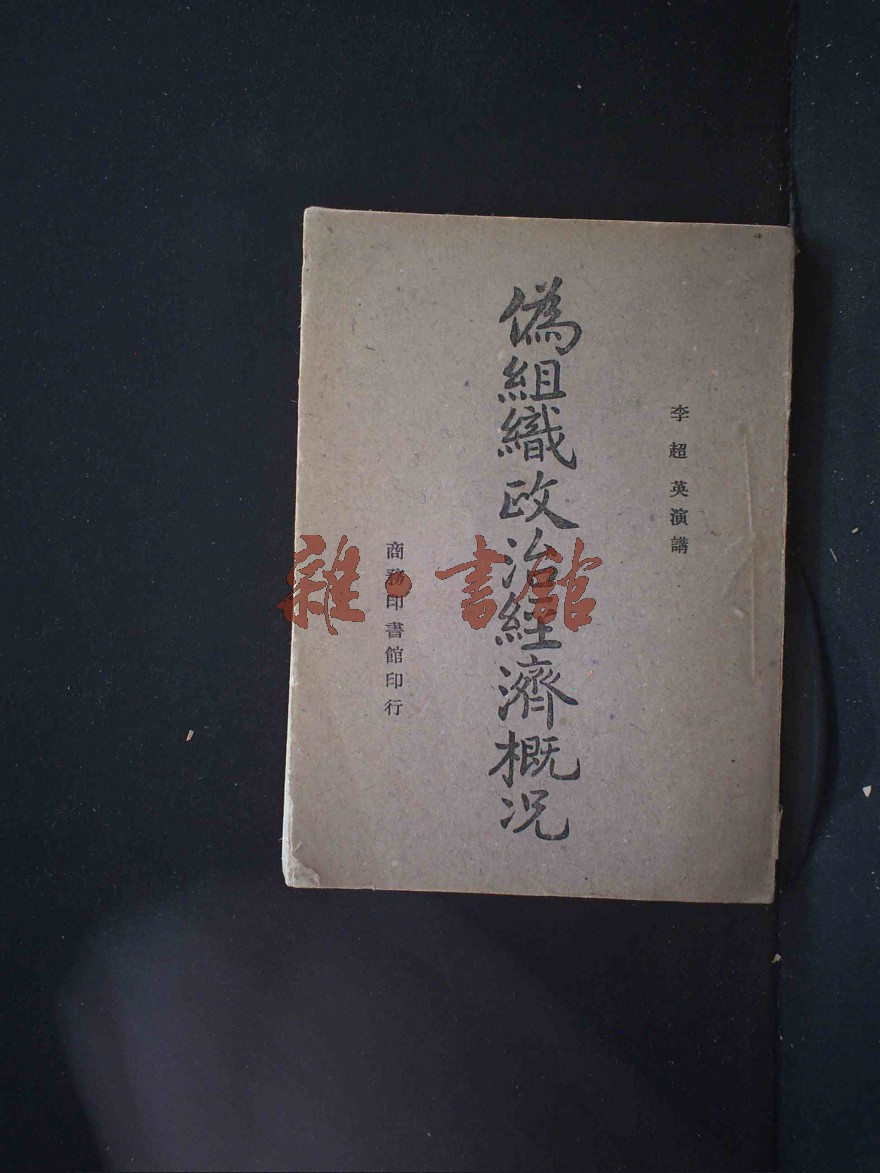 李超英演講
偽組織政治經濟概況
商務印書館印行
雜·書館